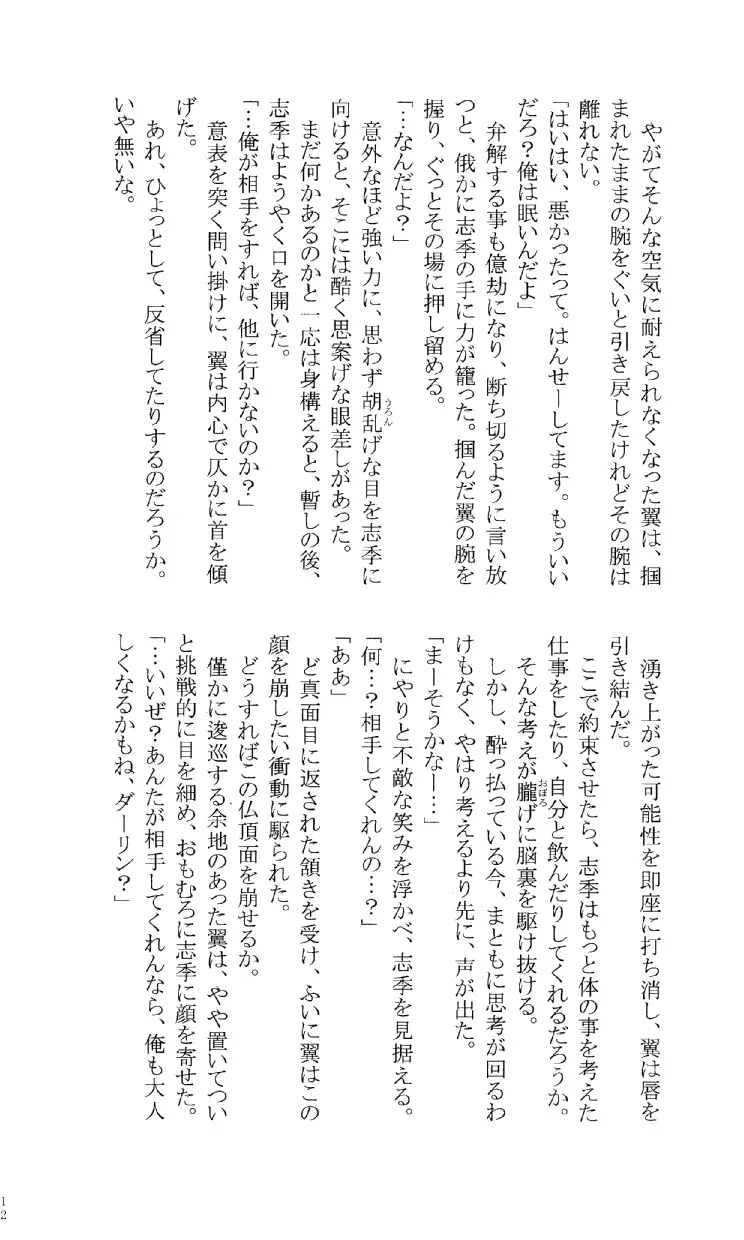 やがてそんな空気に耐えられなくなった翼は、掴
まれたままの腕をぐいと引き戻したけれどその腕は
離れない。
「はいはい、悪かったって。はんせーしてます。もういい
だろ？俺は眠いんだよ」
弁解する事も億劫になり、断ち切るように言い放
つと、俄かに志季の手に力が籠った。掴んだ翼の腕を
握り、ぐっとその場に押し留める。
「…なんだよ？」
意外なほど強い力に、思わず胡乱げな目を志季に
うろん
向けると、そこには酷く思案げな眼差しがあった。
まだ何かあるのかと一応は身構えると、暫しの後、
志季はようやく口を開いた。
「…俺が相手をすれば、他に行かないのか？」
意表を突く問い掛けに、翼は内心で仄かに首を傾
げた。
あれ、ひょっとして、反省してたりするのだろうか。
いや無いな。
湧き上がった可能性を即座に打ち消し、翼は唇を
引き結んだ。
ここで約束させたら、志季はもっと体の事を考えた
仕事をしたり、自分と飲んだりしてくれるだろうか。
そんな考えが朧げに脳裏を駆け抜ける。
おぼろ
しかし、酔っ払っている今、まともに思考が回るわ
けもなく、やはり考えるより先に、声が出た。
「まーそうかなー…」
にやりと不敵な笑みを浮かべ、志季を見据える。
「何…？相手してくれんの…？」
「ああ」
ど真面目に返された頷きを受け、ふいに翼はこの
顔を崩したい衝動に駆られた。
どうすればこの仏頂面を崩せるか。
僅かに逡巡する余地のあった翼は、やや置いてつい
と挑戦的に目を細め、おもむろに志季に顔を寄せた。
「…いいぜ？あんたが相手してくれんなら、俺も大人
しくなるかもね、ダーリン？」
12